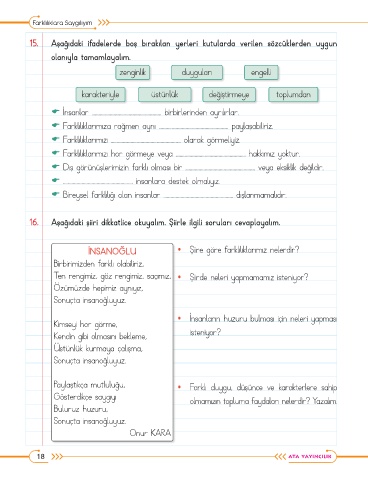 Farklılıklara Saygılıyım
15. Aşağıdaki ifadelerde boş bırakılan yerleri kutularda verilen sözcüklerden uygun
olanıyla tamamlayalım.
zenginlik duyguları engelli
karakteriyle üstünlük değiştirmeye toplumdan
İnsanlar ........................ birbirlerinden ayrılırlar.
Farklılıklarımıza rağmen aynı ........................ paylaşabiliriz.
Farklılıklarımızı ........................ olarak görmeliyiz.
Farklılıklarımızı hor görmeye veya ........................ hakkımız yoktur.
Dış görünüşlerimizin farklı olması bir ........................ veya eksiklik değildir.
........................ insanlara destek olmalıyız.
Bireysel farklılığı olan insanlar ........................ dışlanmamalıdır.
16. Aşağıdaki şiiri dikkatlice okuyalım. Şiirle ilgili soruları cevaplayalım.
İNSANOĞLU
Birbirimizden farklı olabiliriz,
Ten rengimiz, göz rengimiz, saçımız,
Özümüzde hepimiz aynıyız,
Sonuçta insanoğluyuz.
Kimseyi hor görme,
Kendin gibi olmasını bekleme,
Üstünlük kurmaya çalışma,
Sonuçta insanoğluyuz.
Paylaştıkça mutluluğu,
Gösterdikçe saygıyı
Buluruz huzuru,
Sonuçta insanoğluyuz.
Onur KARA
• Şiire göre farklılıklarımız nelerdir?
• Şiirde neleri yapmamamız isteniyor?
• İnsanların huzuru bulması için neleri yapması
isteniyor?
• Farklı duygu, düşünce ve karakterlere sahip
olmamızın topluma faydaları nelerdir? Yazalım.
18
ATA YAYINCILIK